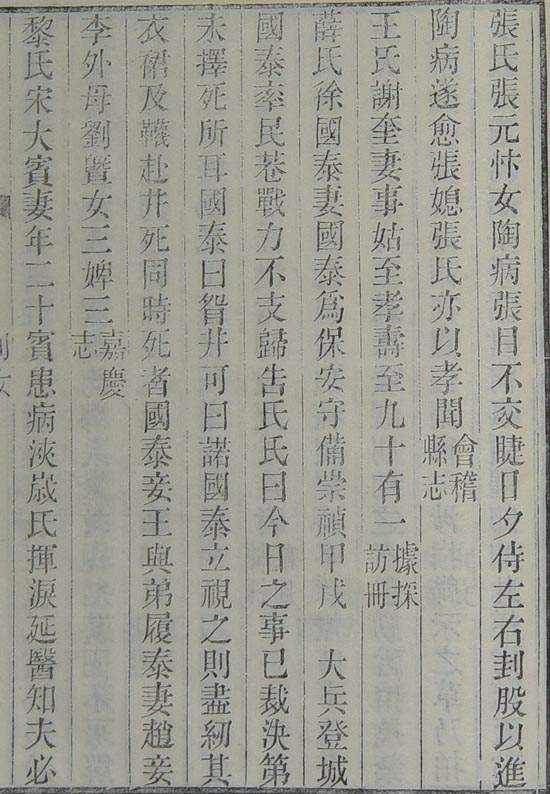 張氏張元忭女陶病張目不交睫日夕侍左右刲股以進
陶病遂愈張媳張氏亦以孝聞會稽縣志
王氏謝奎妻事姑至孝壽至九十有一據採訪冊
薛氏徐國泰妻國泰爲保安守備崇禎甲戌 大兵登城
國泰率民巷戰力不支歸告氏氏曰今日之事已裁決第
未擇死所耳國泰曰眢井可曰諾國泰立視之則盡紉其
衣裙及韈赴井死同時死者國泰妾王與弟履泰妻趙妾
李外母劉暨女三婢三嘉慶志
黎氏宋大賓妻年二十賓患病浹歲氏揮淚延醫知夫必